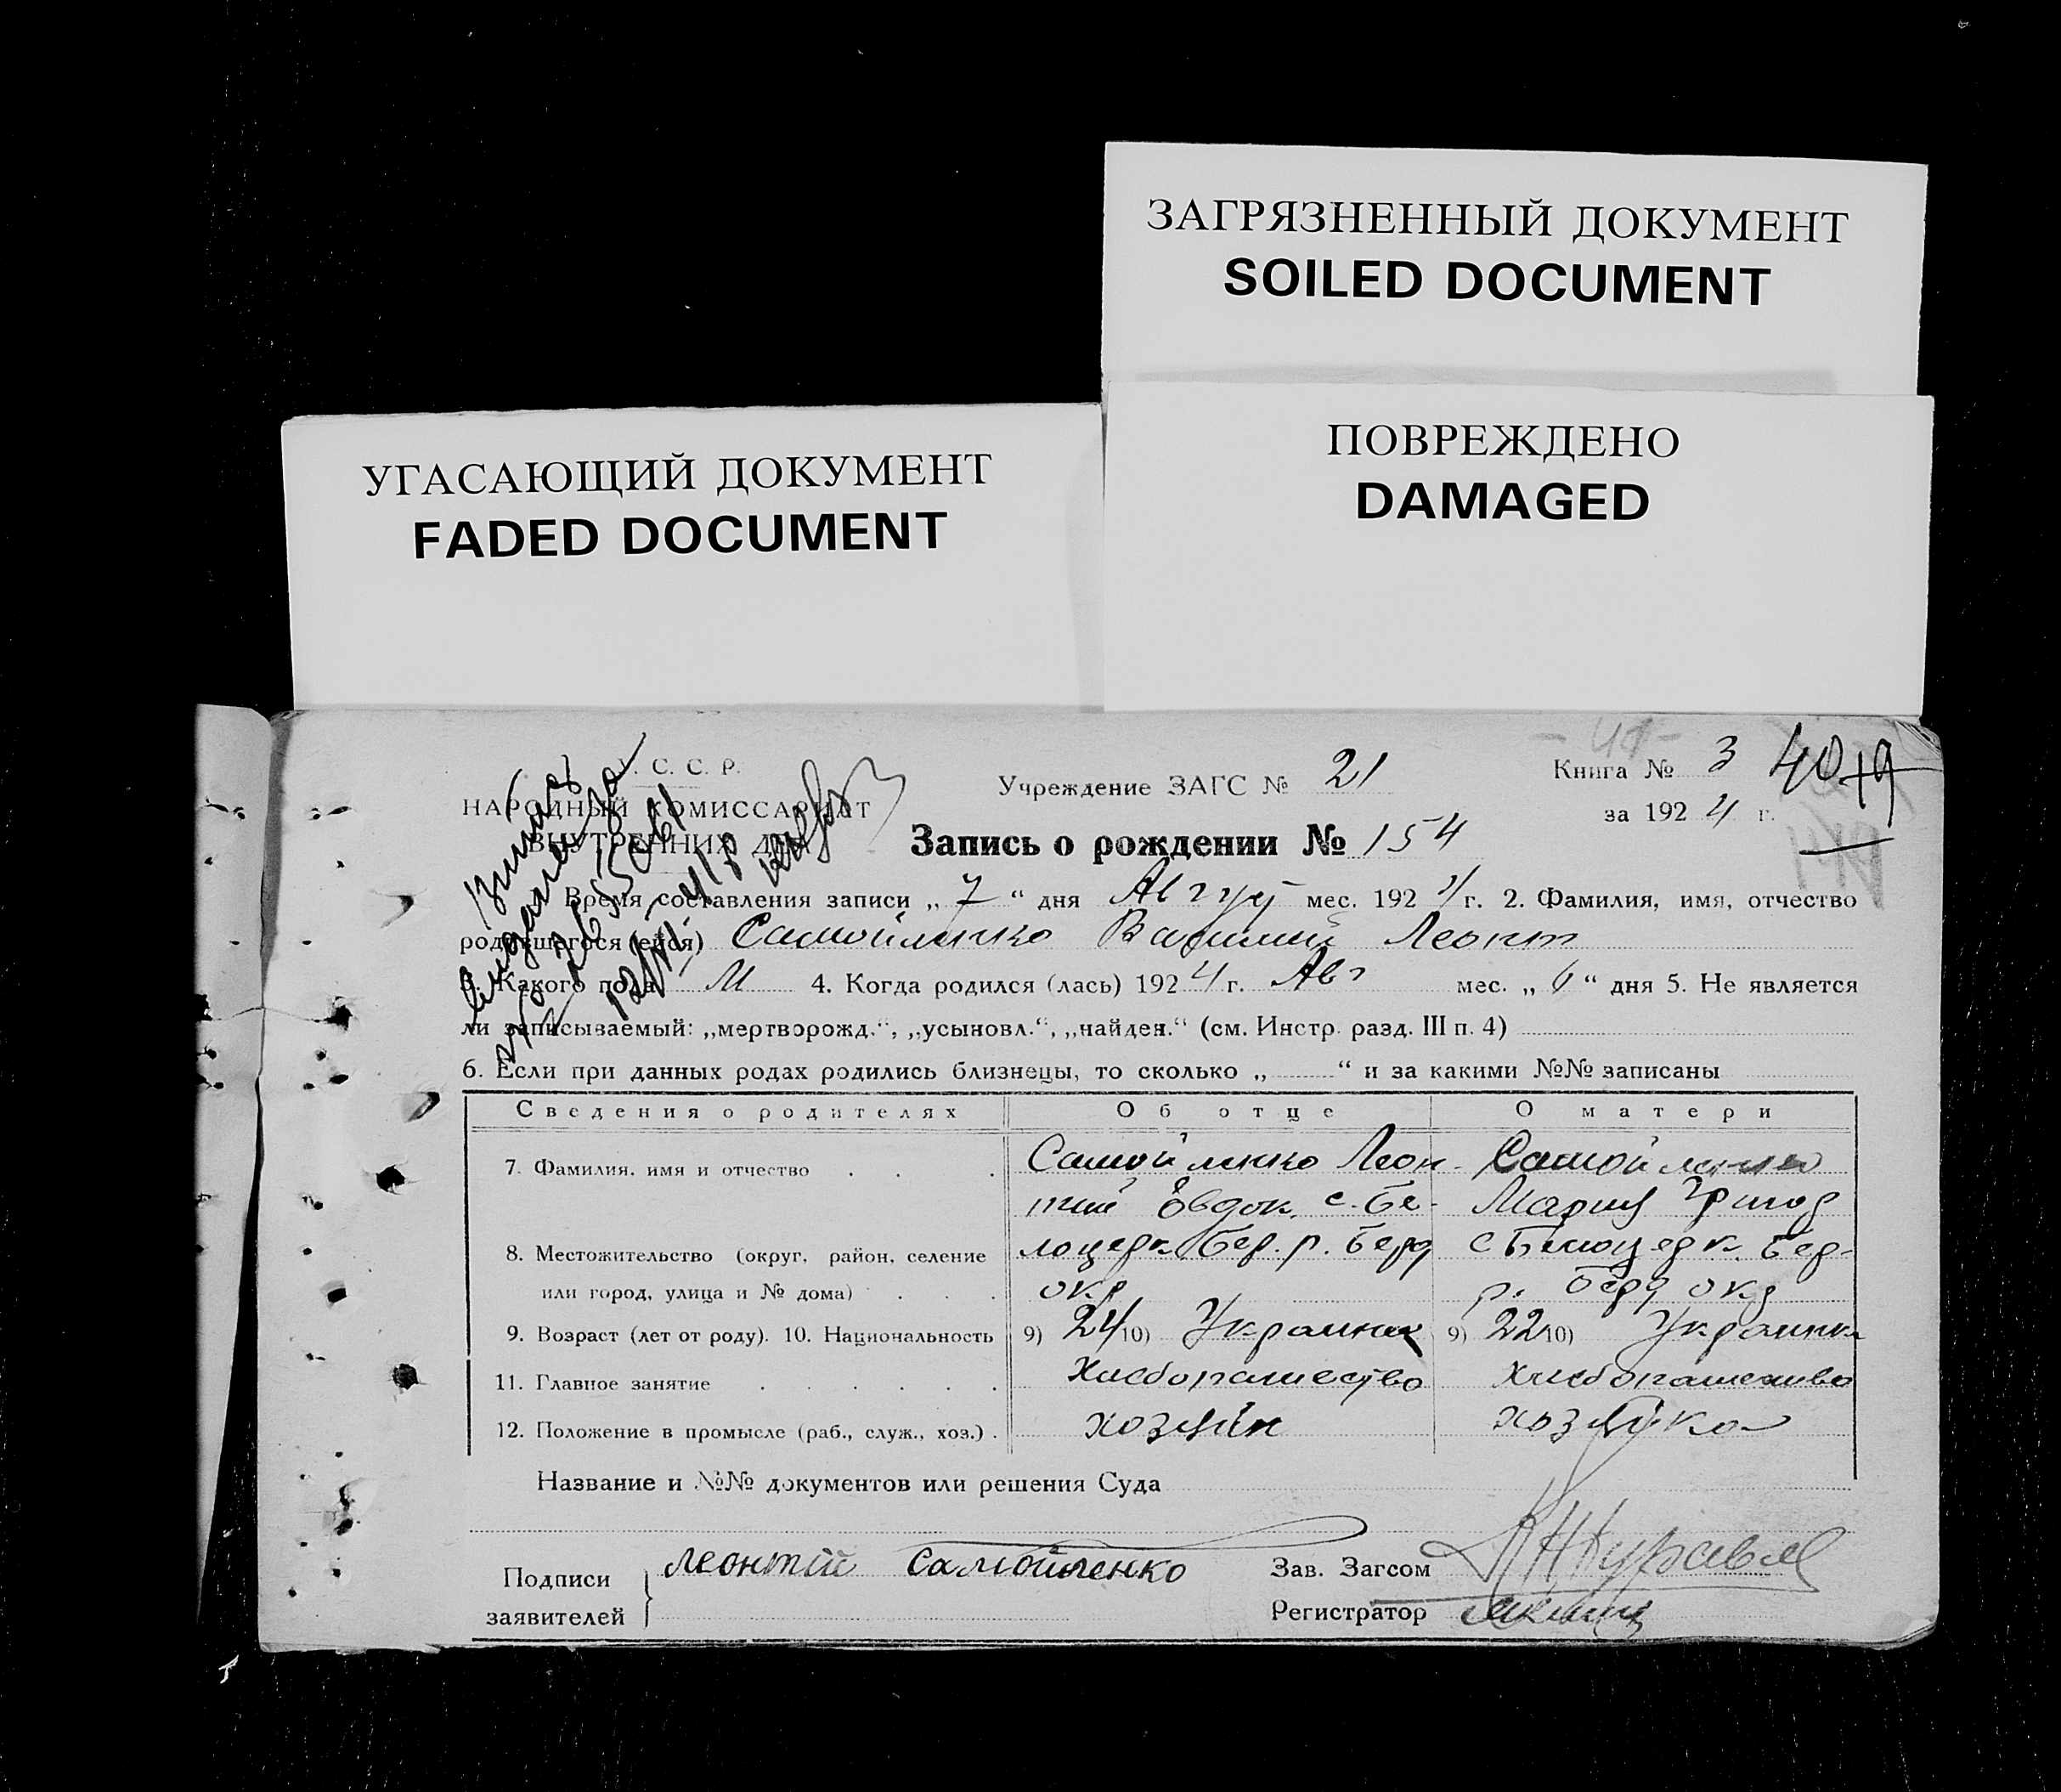 ЗАГРЯЗНЕННЫЙ ДОКУМЕНТ
SOILED DOCUMENT
ПОВРЕЖДЕНО
DAMAGED
УГАСАЮЩИЙ ДОКУМЕНТ
FADED DOCUMENT
У. С. С. Р.
НАРОДНЫЙ КОМИССАРИАТ
ВНУТРЕННИХ ДЕЛ
Учреждение ЗАГС № 21
Книга № 3
за 1924 г.
Запись о рождении № 154
Время составления записи „ 7 “ дня Август мес. 1924 г. 2. Фамилия, имя, отчество
родившегося (ейся) Самойленко Василий Леонт
3. Какого пола М 4. Когда родился (лась) 1924 г. Авг мес. „ 6 “ дня 5. Не является
ли записываемый: „мертворожд.“, „усыновл.“, „найден.“ (см. Инстр. разд. III п. 4)
6. Если при данных родах родились близнецы, то сколько „ “ и за какими №№ записаны
Сведения о родителях Об отце О матери
7. Фамилия, имя и отчество Самойленко Леон- Самойленко
тий Овдок. с. Бе- Мария Григор
8. Местожительство (округ, район, селение лоцерк Бер. р. Берд с Белоцерк. Бер-
или город, улица и № дома) окр р. Берд окр
9. Возраст (лет от роду). 10. Национальность 9) 24 10) Украинец 9) 22 10) Украинка
11. Главное занятие Хлебопашество Хлебопашество
12. Положение в промысле (раб., служ., хоз.) хозяин хозяйка
Название и №№ документов или решения Суда
Подписи
заявителей
Леонтій Самойленко
Зав. Загсом
Регистратор